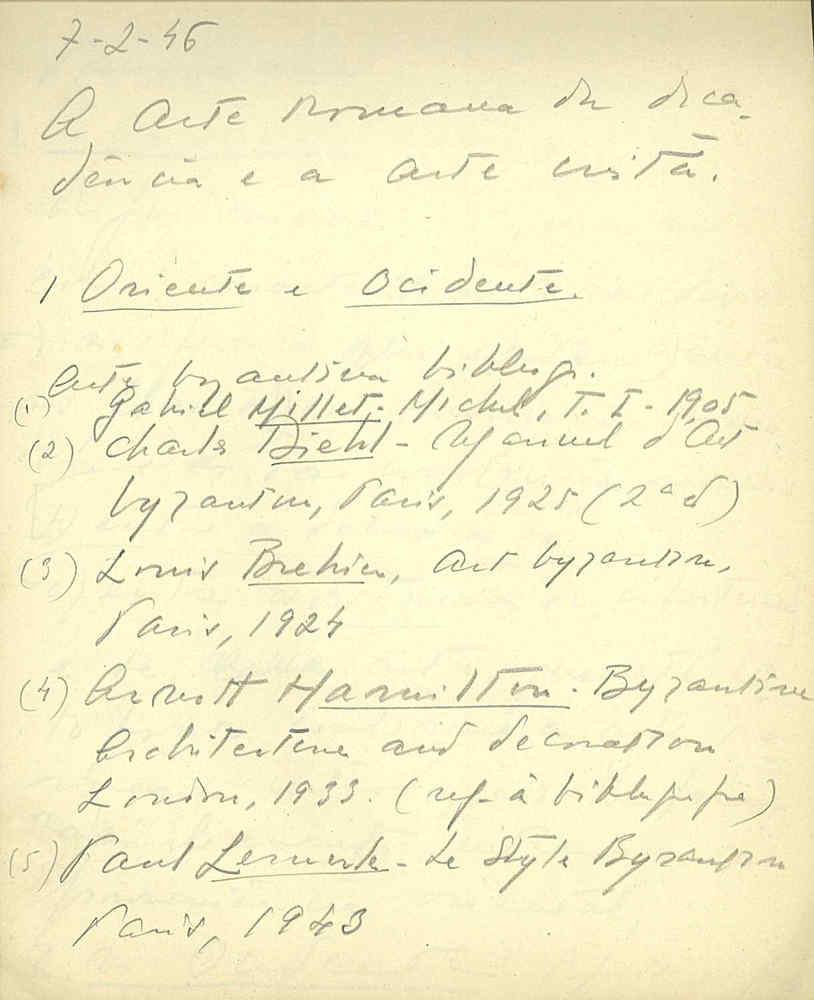 7-2-46
A Arte Romana da deca-
dência e a arte cristã.
1 Oriente e Ocidente.
Arte byzantina bibliogr.
(1) Gabriel Millet - Michel, T. I - 1905
(2) Charles Diehl - Manuel d'Art
byzantin, Paris, 1925 (2ª ed)
(3) Louis Brehier, Art byzantin,
Paris, 1924
(4) Arnott Hamilton. Byzantine
Architecture and decoration
London, 1933. (ref. à bibliografia)
(5) Paul Lemerle - Le Style Byzantin
Paris, 1943